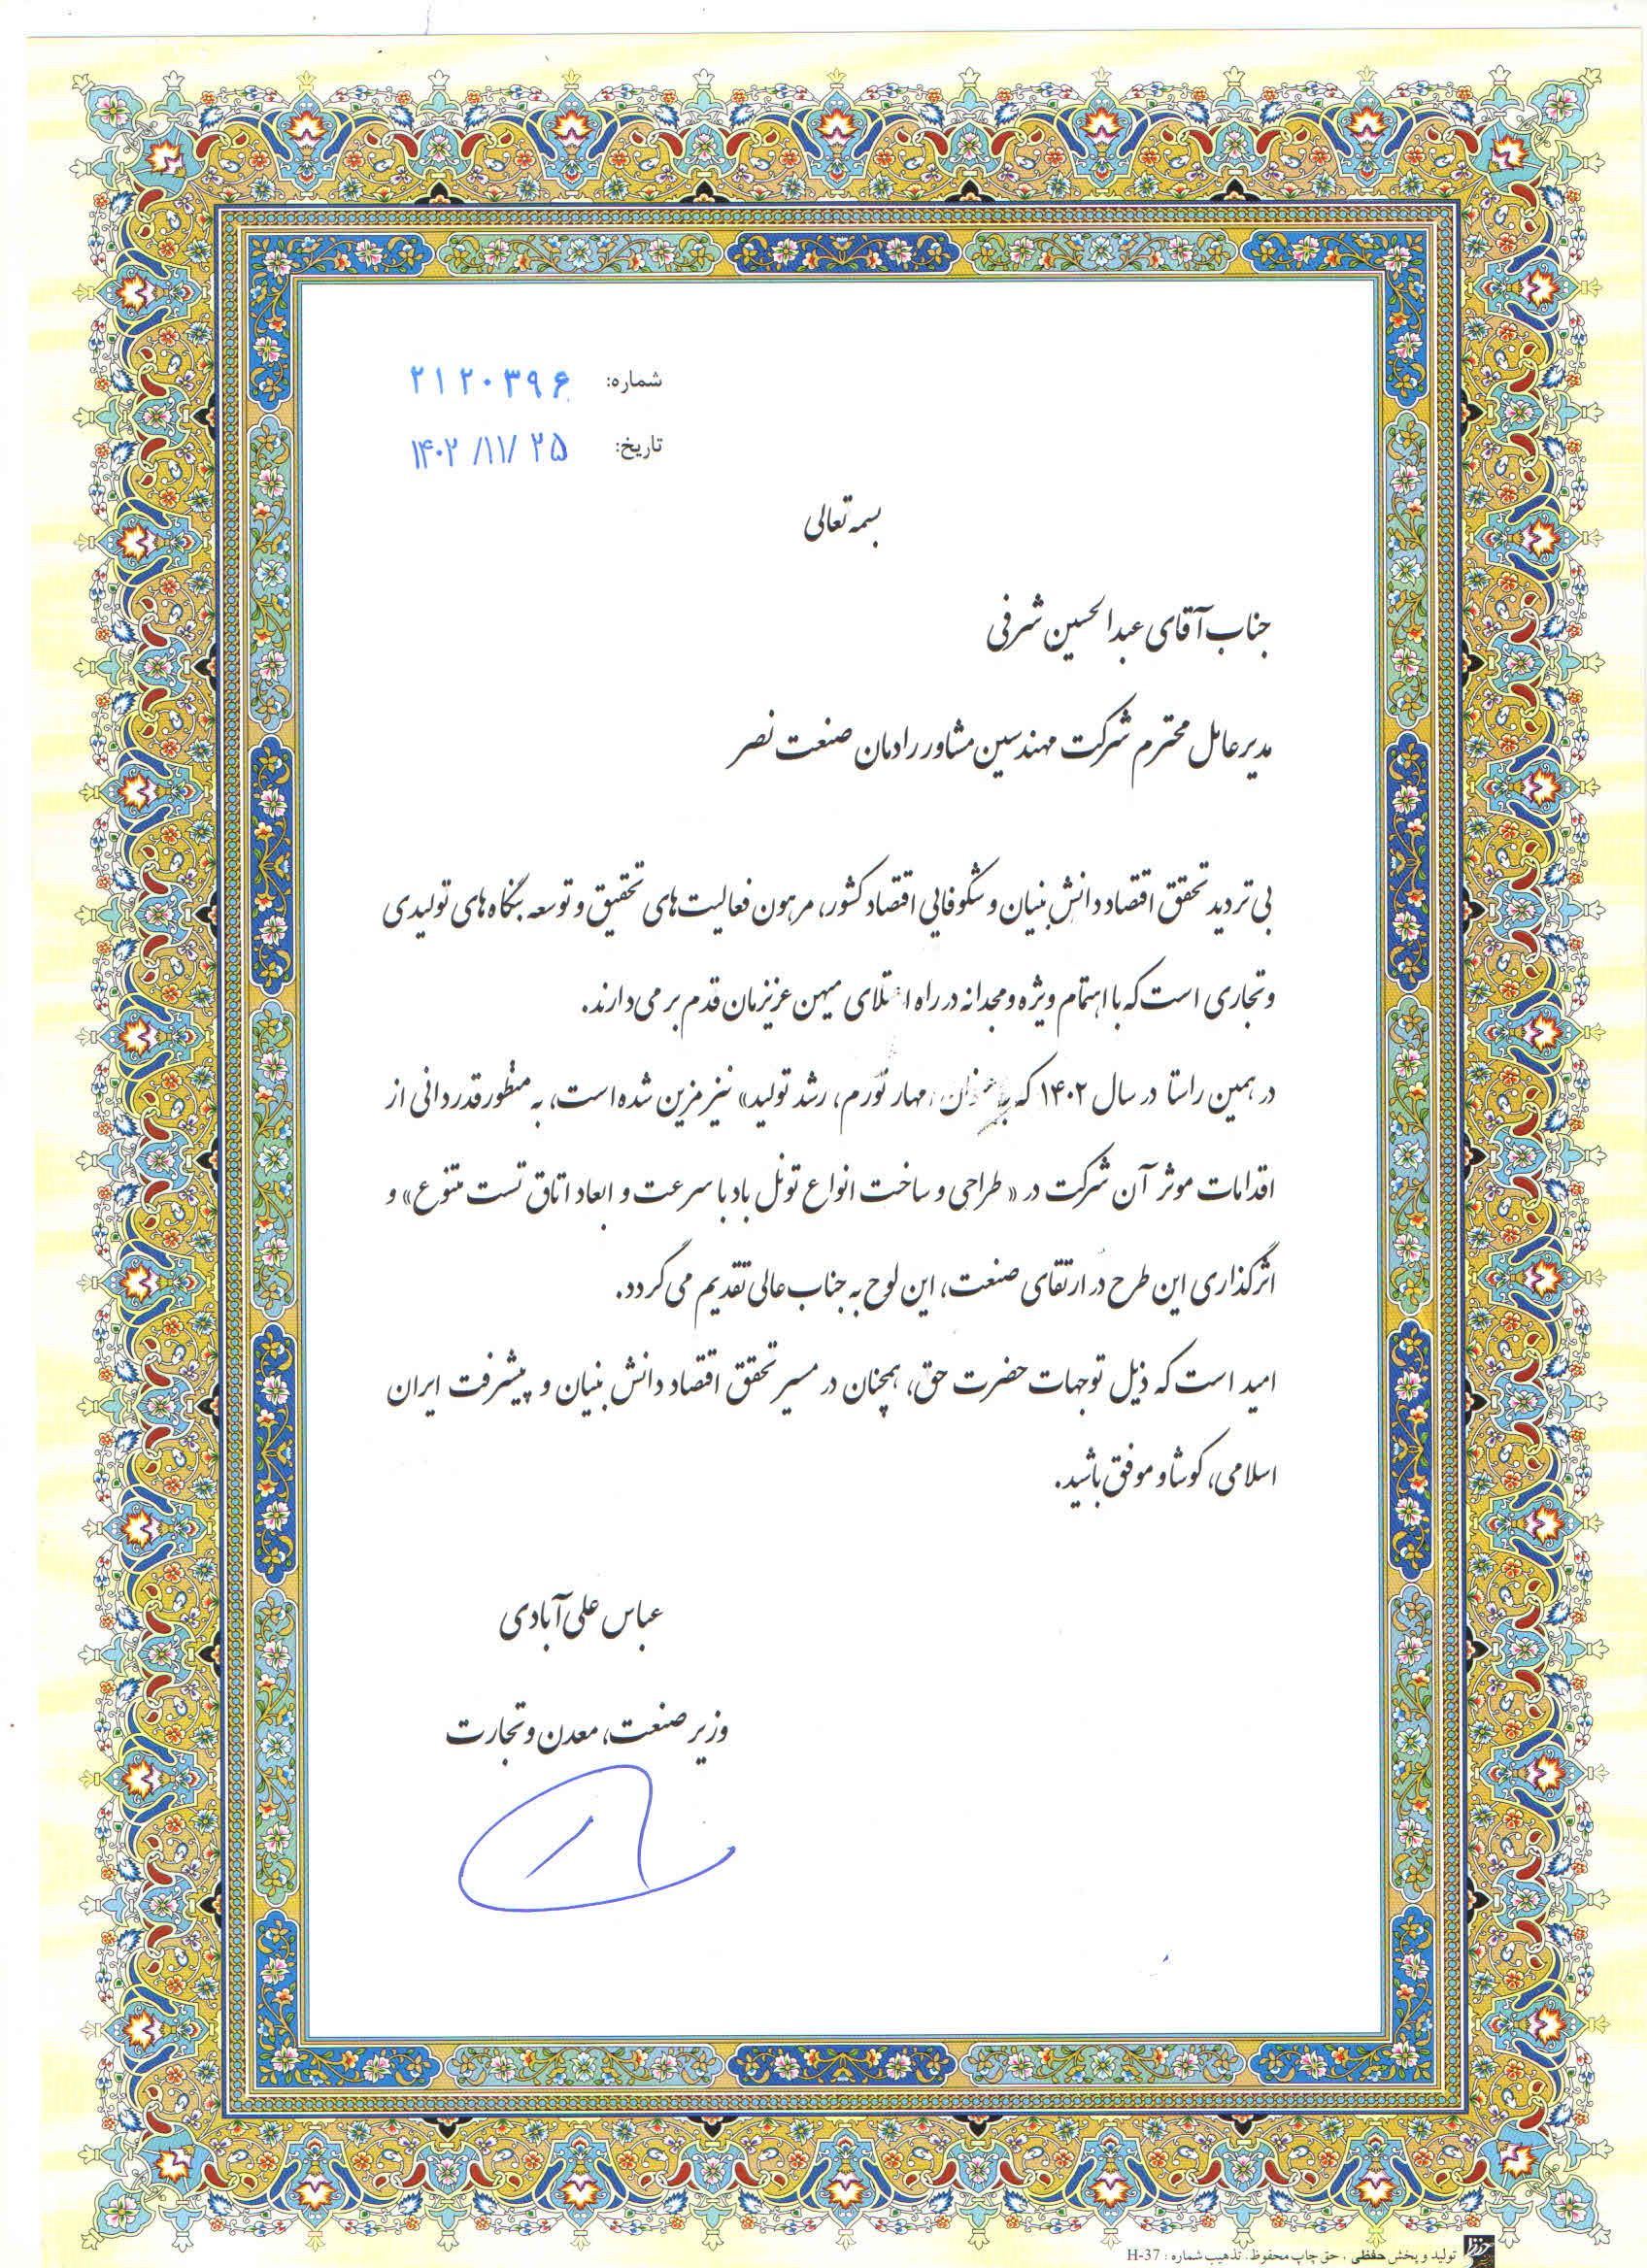 شماره: ۲۱۲۰۳۹۶
تاریخ: ۱۴۰۲/۱۱/۲۵
بسمه تعالی
جناب آقای عبدالحسین شرفی
مدیرعامل محترم شرکت مهندسین مشاور رادمان صنعت نصر
بی تردید تحقق اقتصاد دانش بنیان و شکوفایی اقتصاد کشور، مرهون فعالیت‌های تحقیق و توسعه بنگاه‌های تولیدی
و تجاری است که با اهتمام ویژه و مجدانه در راه اعتلای میهن عزیزمان قدم بر می‌دارند.
در همین راستا در سال ۱۴۰۲ که مهار تورم، رشد تولید» نیز مزین شده است، به منظور قدردانی از
اقدامات موثر آن شرکت در « طراحی و ساخت انواع تونل باد با سرعت و ابعاد اتاق تست متنوع» و
اثرگذاری این طرح در ارتقای صنعت، این لوح به جناب عالی تقدیم می گردد.
امید است که ذیل توجهات حضرت حق، همچنان در مسیر تحقق اقتصاد دانش بنیان و پیشرفت ایران
اسلامی، کوشا و موفق باشید.
عباس علی آبادی
وزیر صنعت، معدن و تجارت
تولید و پخش حفظی . حق چاپ محفوظ. تذهیب شماره : H-37